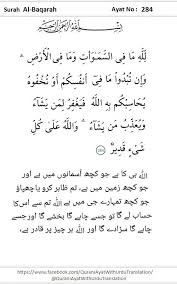 Surah Al-Baqarah Ayat No : 284
بِسْمِ اللّٰهِ الرَّحْمٰنِ الرَّحِيْمِ
لِلّٰهِ مَا فِى السَّمٰوٰتِ وَمَا فِى الْاَرْضِ ؕ
وَاِنْ تُبْدُوْا مَا فِىْۤ اَنْفُسِكُمْ اَوْ تُخْفُوْهُ
يُحَاسِبْكُمْ بِهِ اللّٰهُ ؕ فَيَغْفِرُ لِمَنْ يَّشَآءُ
وَيُعَذِّبُ مَنْ يَّشَآءُ ؕ وَاللّٰهُ عَلٰى كُلِّ
شَىْءٍ قَدِيْرٌ
اللہ ہی کا ہے جو کچھ آسمانوں میں ہے اور
جو کچھ زمین میں ہے، تم ظاہر کرو یا چھپاؤ
جو کچھ تمہارے جی میں ہے اللہ تم سے اس کا
حساب لے گا تو جسے چاہے گا بخشے گا اورجسے
چاہے گا سزادے گا اور اللہ ہر چیز پر قادر ہے،
https://www.facebook.com/QuraniAyatWithUrduTranslation/
@QuraniAyatWithUrduTranslation